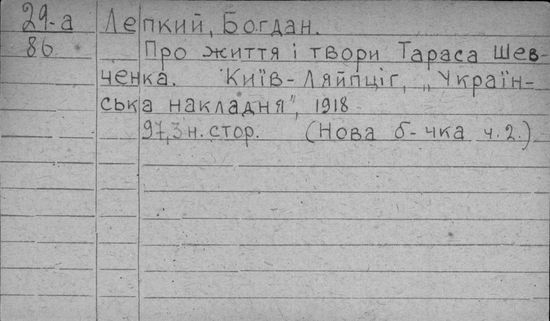 29-а Лепкий, Богдан.
86 Про життя і твори Тараса Шев-
ченка. Київ-Ляйпціг, „Україн-
ська накладня", 1918
97,3 н. стор. (Нова б-чка ч. 2.)